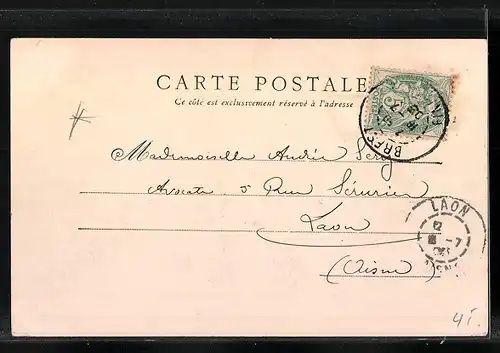 CARTE POSTALE
Ce côté est exclusivement réservé à l'adresse
BREST
Mademoiselle Andrée
Avocate 5 Rue Sérurier
Laon
(Aisne)
LAON
-7
AISNE
41.